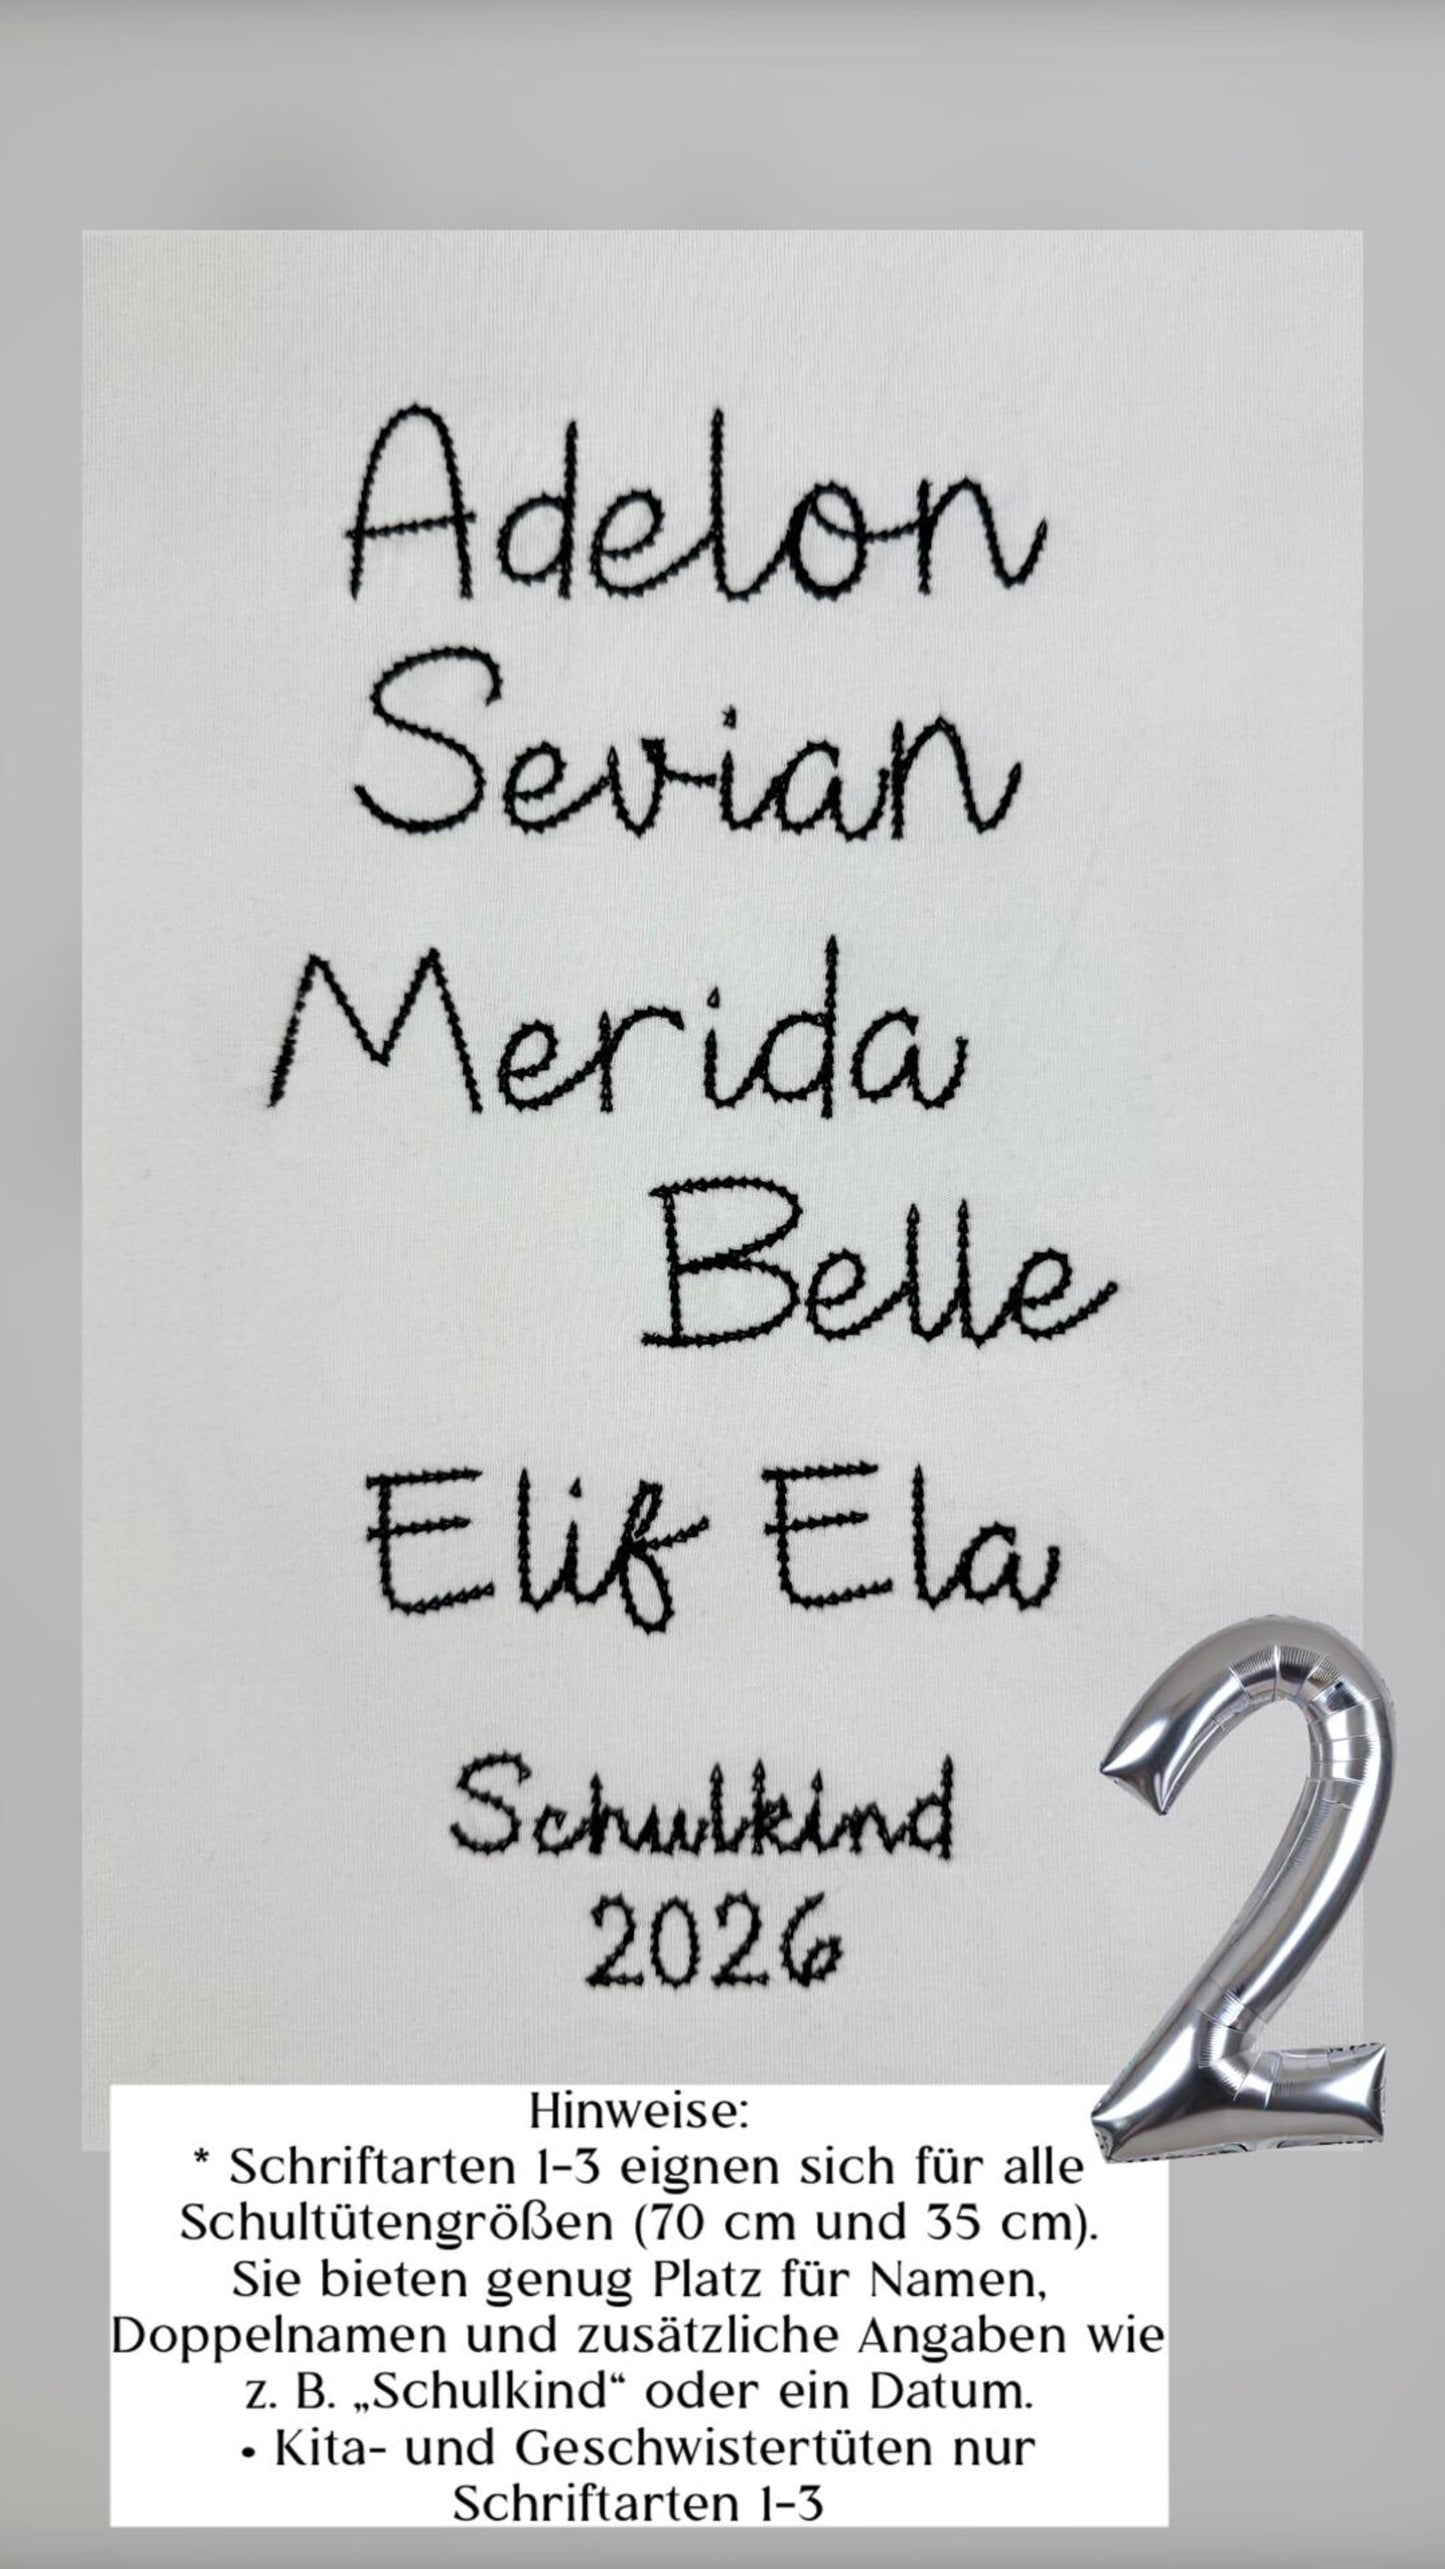 Adelon
Sevian
Merida
Belle
Elif Ela
Schulkind
2026
2
Hinweise:
* Schriftarten 1-3 eignen sich für alle
Schultütengrößen (70 cm und 35 cm).
Sie bieten genug Platz für Namen,
Doppelnamen und zusätzliche Angaben wie
z. B. „Schulkind“ oder ein Datum.
• Kita- und Geschwistertüten nur
Schriftarten 1-3